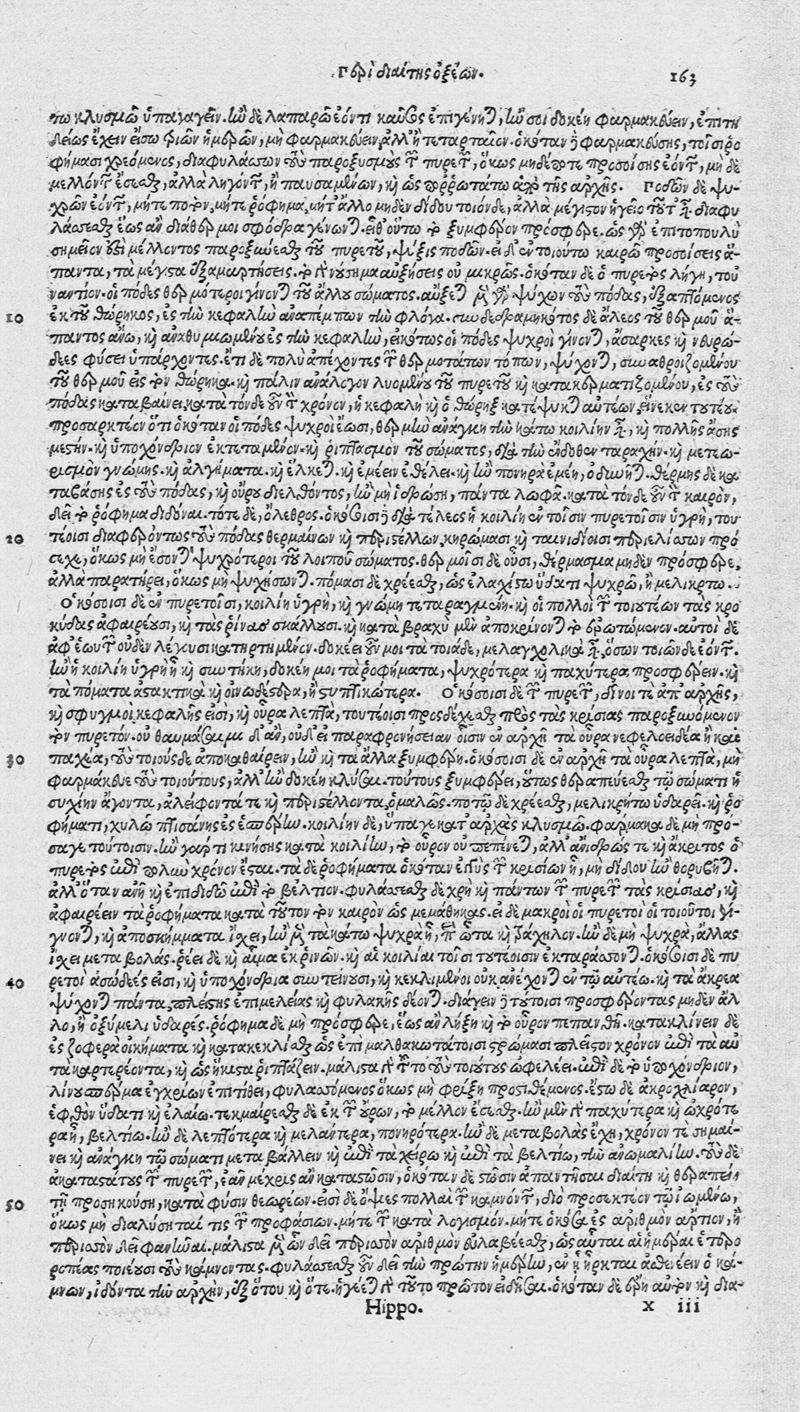 Περὶ διαίτης ὀξέων. 163
τω κλυσμῷ ὑπαγαγεῖν. ἢν δὲ λαπαρῷ ἐόντι καῦσος ἐπιγένηται, ἤν σοι δοκέῃ φαρμακεύειν, ἐπιτη
δείως ἔχειν εἴσω τριῶν ἡμερῶν, μὴ φαρμακεύειν, ἀλλ' ἢ τεταρταῖον. ὁκόταν δὲ φαρμακεύσῃς, τοῖσι ῥο
φήμασι χρεόμενος, διαφυλάσσων τοὺς παροξυσμοὺς τῶν πυρετῶν, ὅκως μηδέποτε προσοίσῃς ἐόντων, μηδὲ
μελλόντων ἔσεσθαι, ἀλλὰ ληγόντων, ἢ παυσαμένων, καὶ ὡς ποῤῥωτάτω ἀπὸ τῆς ἀρχῆς. Ποδῶν δὲ ψυ-
χρῶν ἐόντων, μήτε ποτὸν, μήτε ῥόφημα, μήτ' ἄλλο μηδὲν δίδου τοιόνδε, ἀλλὰ μέγιστον ἡγεῖο τοῦτ' εἶναι διαφυ
λάσσεσθαι ἕως ἂν διάθερμοι σφόδρα γένωνται. εἶθ' οὕτω τὸ ξυμφέρον πρόσφερε. ὡς γὰρ ἐπιτοπουλὺ
σημεῖόν ἐστι μέλλοντος παροξύνεσθαι τοῦ πυρετοῦ, ψύξις ποδῶν. εἰ δ' ἐν τοιούτῳ καιρῷ προσοίσεις ἅ-
παντα, τὰ μέγιστα ἐξαμαρτήσεις. τὸ γὰρ νούσημα αὐξήσεις οὐ μικρῶς. ὁκόταν δὲ ὁ πυρετὸς λήγῃ, τοὐ
ναντίον. οἱ πόδες θερμότεροι γίνονται τοῦ ἄλλου σώματος. αὔξεται μὲν γὰρ ψύχων τοὺς πόδας, ἐξαπτόμενος
10 ἐκ τοῦ θώρηκος, ἐς τὴν κεφαλὴν ἀναπέμπων τὴν φλόγα. συνδεδραμηκότος δὲ ἁλέος τοῦ θερμοῦ ἅ-
παντος ἄνω, καὶ ἀναθυμιωμένου ἐς τὴν κεφαλὴν, εἰκότως οἱ πόδες ψυχροὶ γίνονται, ἄσαρκες καὶ νευρώ-
δεες φύσει ὑπάρχοντες. ἔτι δὲ πολὺ ἀπέχοντες τῶν θερμοτάτων τόπων, ψύχονται, συναθροιζομένου
τοῦ θερμοῦ εἰς τὸν θώρηκα. καὶ πάλιν ἀνάλογον λυομένου τοῦ πυρετοῦ καὶ κατακερματιζομένου, ἐς τοὺς
πόδας καταβαίνει. κατὰ τόνδε οὖν τὸν χρόνον, ἡ κεφαλὴ καὶ ὁ θώρηξ κατέψυκται αὐτέων. εἵνεκεν τουτέου.
προσαρκτέον ὅτι ὁκόταν οἱ πόδες ψυχροὶ ἔωσι, θερμὴν ἀνάγκη τὴν κάτω κοιλίην εἶναι, καὶ πολλῆς ἄσης
μεστήν. καὶ ὑποχόνδριον ἐκτεταμένον. καὶ ῥιπτασμὸν τοῦ σώματος, διὰ τὴν ἔνδοθεν ταραχήν. καὶ μετεω-
ρισμὸν γνώμης. καὶ ἀλγήματα. καὶ ἕλκεται. καὶ ἐμέειν ἐθέλει. καὶ ἢν πονηρὰ ἐμέῃ, ὀδυνῆται. θέρμης δὲ κα
ταβάσης ἐς τοὺς πόδας, καὶ οὔρου διελθόντος, ἢν μὴ ἱδρώσῃ, πάντα λωφᾷ. κατὰ τόνδε οὖν τὸν καιρὸν,
δεῖ τὸ ῥόφημα διδόναι. τότε δὲ, ὄλεθρος. ὁκόσοισι δὲ διὰ τέλεος ἡ κοιλίη ἐν τοῖσιν πυρετοῖσιν ὑγρὴ, του
20 τέοισι διαφερόντως τοὺς πόδας θερμαίνων καὶ περιστέλλων, κηρώμασι καὶ ταινιδίοισι περιελίσσων πρό
σεχε, ὅκως μὴ ἔσονται ψυχρότεροι τοῦ λοιποῦ σώματος. θερμοῖσι δὲ οὖσι, θέρμασμα μηδὲν πρόσφερε,
ἀλλὰ παρατήρει, ὅκως μὴ ψυχήσωνται. πόμασι δὲ χρέεσθαι, ὡς ἐλαχίστῳ ὕδατι ψυχρῷ, ἢ μελικρήτῳ.
Ὁκόσοισι δὲ ἐν πυρετοῖσι, κοιλίη ὑγρὴ, καὶ γνώμη τεταραγμένη. καὶ οἱ πολλοὶ τῶν τοιουτέων τὰς κρο
κύδας ἀφαιρέουσι, καὶ τὰς ῥῖνας σκάλλουσι. καὶ κατὰ βραχὺ μὲν ἀποκρίνονται τὸ ἐρωτώμενον. αὐτοὶ δὲ
ἀφ' ἑωυτῶν οὐδὲν λέγουσι κατηρτημένον. δοκέει οὖν μοι τὰ τοιάδε, μελαγχολικὰ εἶναι. ὅσων τοιῶνδε ἐόντων.
ἢν ἡ κοιλίη ὑγρὴ ᾖ καὶ συντήκῃ, δοκέῃ μοι τὰ ῥοφήματα, ψυχρότερα καὶ παχύτερα προσφέρειν. καὶ
τὰ πόματα στατικὰ καὶ οἰνωδέστερα, ἢ στυπτικώτερα. Ὁκόσοισι δὲ τῶν πυρετῶν, δῖνοί τε ἀπ' ἀρχῆς,
καὶ σφυγμοὶ κεφαλῆς εἰσι, καὶ οὖρα λεπτὰ, τουτέοισι προσδέχεσθαι πρὸς τὰς κρίσιας παροξυνόμενον
τὸν πυρετόν. οὐ θαυμάσαιμι δ' ἂν, οὐδ' εἰ παραφρονήσειαν οἷσιν ἐν ἀρχῇ τὰ οὖρα νεφελοειδέα ἢ καὶ
30 παχέα, τοὺς τοιούσδε ἀποκαθαίρειν, ἢν καὶ τὰ ἄλλα ξυμφέρῃ. ὁκόσοισι δὲ ἐν ἀρχῇ τὰ οὖρα λεπτὰ, μὴ
φαρμάκευε τοὺς τοιούτους, ἀλλ' ἢν δοκέῃ κλύσαι. τούτους ξυμφέρει, οὕτως θεραπεύεσθαι τῷ σώματι ἡ
συχίην ἄγοντα, ἀλείφοντά τε καὶ περιστέλλοντα, ὁμαλῶς. ποτῷ δὲ χρέεσθαι, μελικρήτῳ ὑδαρεῖ. καὶ ῥο
φήματι, χυλῷ πτισάνης ἐς ἑσπέρην. κοιλίην δὲ, ὕπαγε κατ' ἀρχὰς κλυσμῷ. φάρμακα δὲ μὴ προ-
σαγε τούτοισιν. ἢν γάρ τι κινήσῃς κατὰ κοιλίην, τὸ οὖρον οὐ πεπαίνεται, ἀλλ' ἀνιδρώς τε καὶ ἄκριτος ὁ
πυρετὸς ἐπὶ πολὺν χρόνον ἔσται. τὰ δὲ ῥοφήματα ὁκόταν ἐγγὺς τῶν κρισίων ᾖ, μὴ δίδου ἢν θορυβῆται.
ἀλλ' ὅταν ἀνῇ καὶ ἐπιδιδῷ ἐπὶ τὸ βέλτιον. φυλάσσεσθαι δὲ χρὴ καὶ πάντων τῶν πυρετῶν τὰς κρίσιας, καὶ
ἀφαιρέειν τὰ ῥοφήματα κατὰ τοῦτον τὸν καιρὸν ὡς μεμάθηκας. εἰ δὲ μακροὶ οἱ πυρετοὶ οἱ τοιοῦτοι γί-
γνονται, καὶ ἀποσκήμματα ἴσχει, ἢν μὲν τὰ κάτω ψυχρὰ ᾖ, παρ' ὦτα καὶ τράχηλον. ἢν δὲ μὴ ψυχρὰ, ἄλλας
ἴσχει μεταβολάς. ῥέει δὲ καὶ αἷμα ἐκ ῥινῶν. καὶ αἱ κοιλίαι τοῖσι τουτέοισιν ἐκταράσσονται. ὁκόσοισι δὲ πυ
40 ρετοὶ ἀσώδεές εἰσι, καὶ ὑποχόνδρια συντείνουσι, καὶ κεκλιμένοι οὐκ ἀνέχονται ἐν τῷ αὐτέῳ. καὶ τὰ ἄκρεα
ψύχονται πάντα, πλείστης ἐπιμελείας καὶ φυλακῆς δέονται. διάγειν δὲ τούτοισι προσφέροντας μηδὲν ἄλ
λο, ἢ ὀξύμελι ὑδαρές. ῥόφημα δὲ μὴ πρόσφερε, ἕως ἂν λήξῃ καὶ τὸ οὖρον πεπανθῇ. κατακλίνειν δὲ
ἐς ζοφερὰ οἰκήματα καὶ κατακεκλίσθαι ὡς ἐπὶ μαλθακωτάτοισι στρώμασι πλεῖστον χρόνον ἐπὶ τὰ αὐ
τὰ καρτερέοντα, καὶ ὡς ἥκιστα ῥιπτάζειν. μάλιστα γὰρ τοῦτο τοὺς τοιούτους ὠφελέει. ἐπὶ δὲ τὸ ὑποχόνδριον,
λίνου σπέρμα ἐγχρίων ἐπιτίθει, φυλασσόμενος ὅκως μὴ φρίξῃ προστιθέμενος. ἔστω δὲ ἀκροχλίαρον,
ἑφθὸν ὕδατι καὶ ἐλαίῳ. τεκμαίρεσθαι δὲ ἐκ τῶν οὔρων, τὸ μέλλον ἔσεσθαι. ἢν μὲν γὰρ παχύτερα καὶ ὠχρότε
ρα ᾖ, βελτίω. ἢν δὲ λεπτότερα καὶ μελάντερα, πονηρότερα. ἢν δὲ μεταβολὰς ἔχῃ, χρόνον τε σημαί-
νει καὶ ἀνάγκη τῷ σώματι μεταβάλλειν καὶ ἐπὶ τὰ χείρω καὶ ἐπὶ τὰ βελτίω, τὴν ἀνωμαλίην. τοὺς δὲ
ἀκαταστάτους τῶν πυρετῶν, ἐᾶν μέχρις ἂν καταστῶσιν, ὁκόταν δὲ στῶσιν ἀπαντῆσαι διαίτῃ καὶ θεραπείῃ
50 τῇ προσηκούσῃ, κατὰ φύσιν θεωρέων. εἰσὶ δὲ ὄψιες πολλαὶ τῶν καμνόντων, διὸ προσεκτέον τῷ ἰωμένῳ,
ὅκως μὴ διαλύσηταί τις τῶν προφάσιων. μήτε τῶν κατὰ λογισμόν. μήτε ὁκόσα ἐς ἀριθμὸν ἄρτιον, ἢ
περισσὸν δεῖ φανῆναι. μάλιστα μὲν οὖν δεῖ περισσὸν ἀριθμὸν εὐλαβέεσθαι, ὡς αὗται αἱ ἡμέραι ἑτερο
ρεπέας ποιέουσι τοὺς κάμνοντας. φυλάσσεσθαι οὖν δεῖ τὴν πρώτην ἡμέρην, ἐν ᾗ ἦρκται ἀσθενέειν ὁ κά-
μνων, ἰδόντα τὴν ἀρχὴν, ἐξ ὅτου καὶ ὅτε. ἡγέεται γὰρ τοῦτο πρῶτον εἰδῆσαι. ὁκόταν δὲ ἔρῃ αὐτὸν καὶ δια-
Hippo. x iii